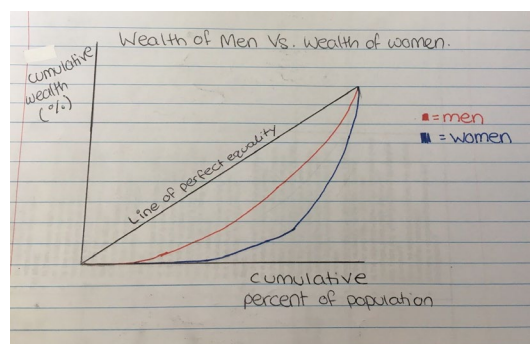 Wealth of Men Vs. wealth of women.
cumulative
wealth
(%)
Line of perfect equality
= men
= women
cumulative
percent of population